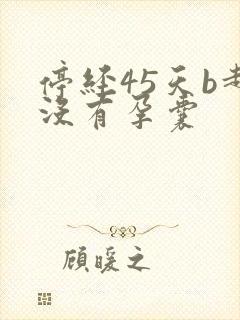 停经45天b
没有孕囊
顾暖之